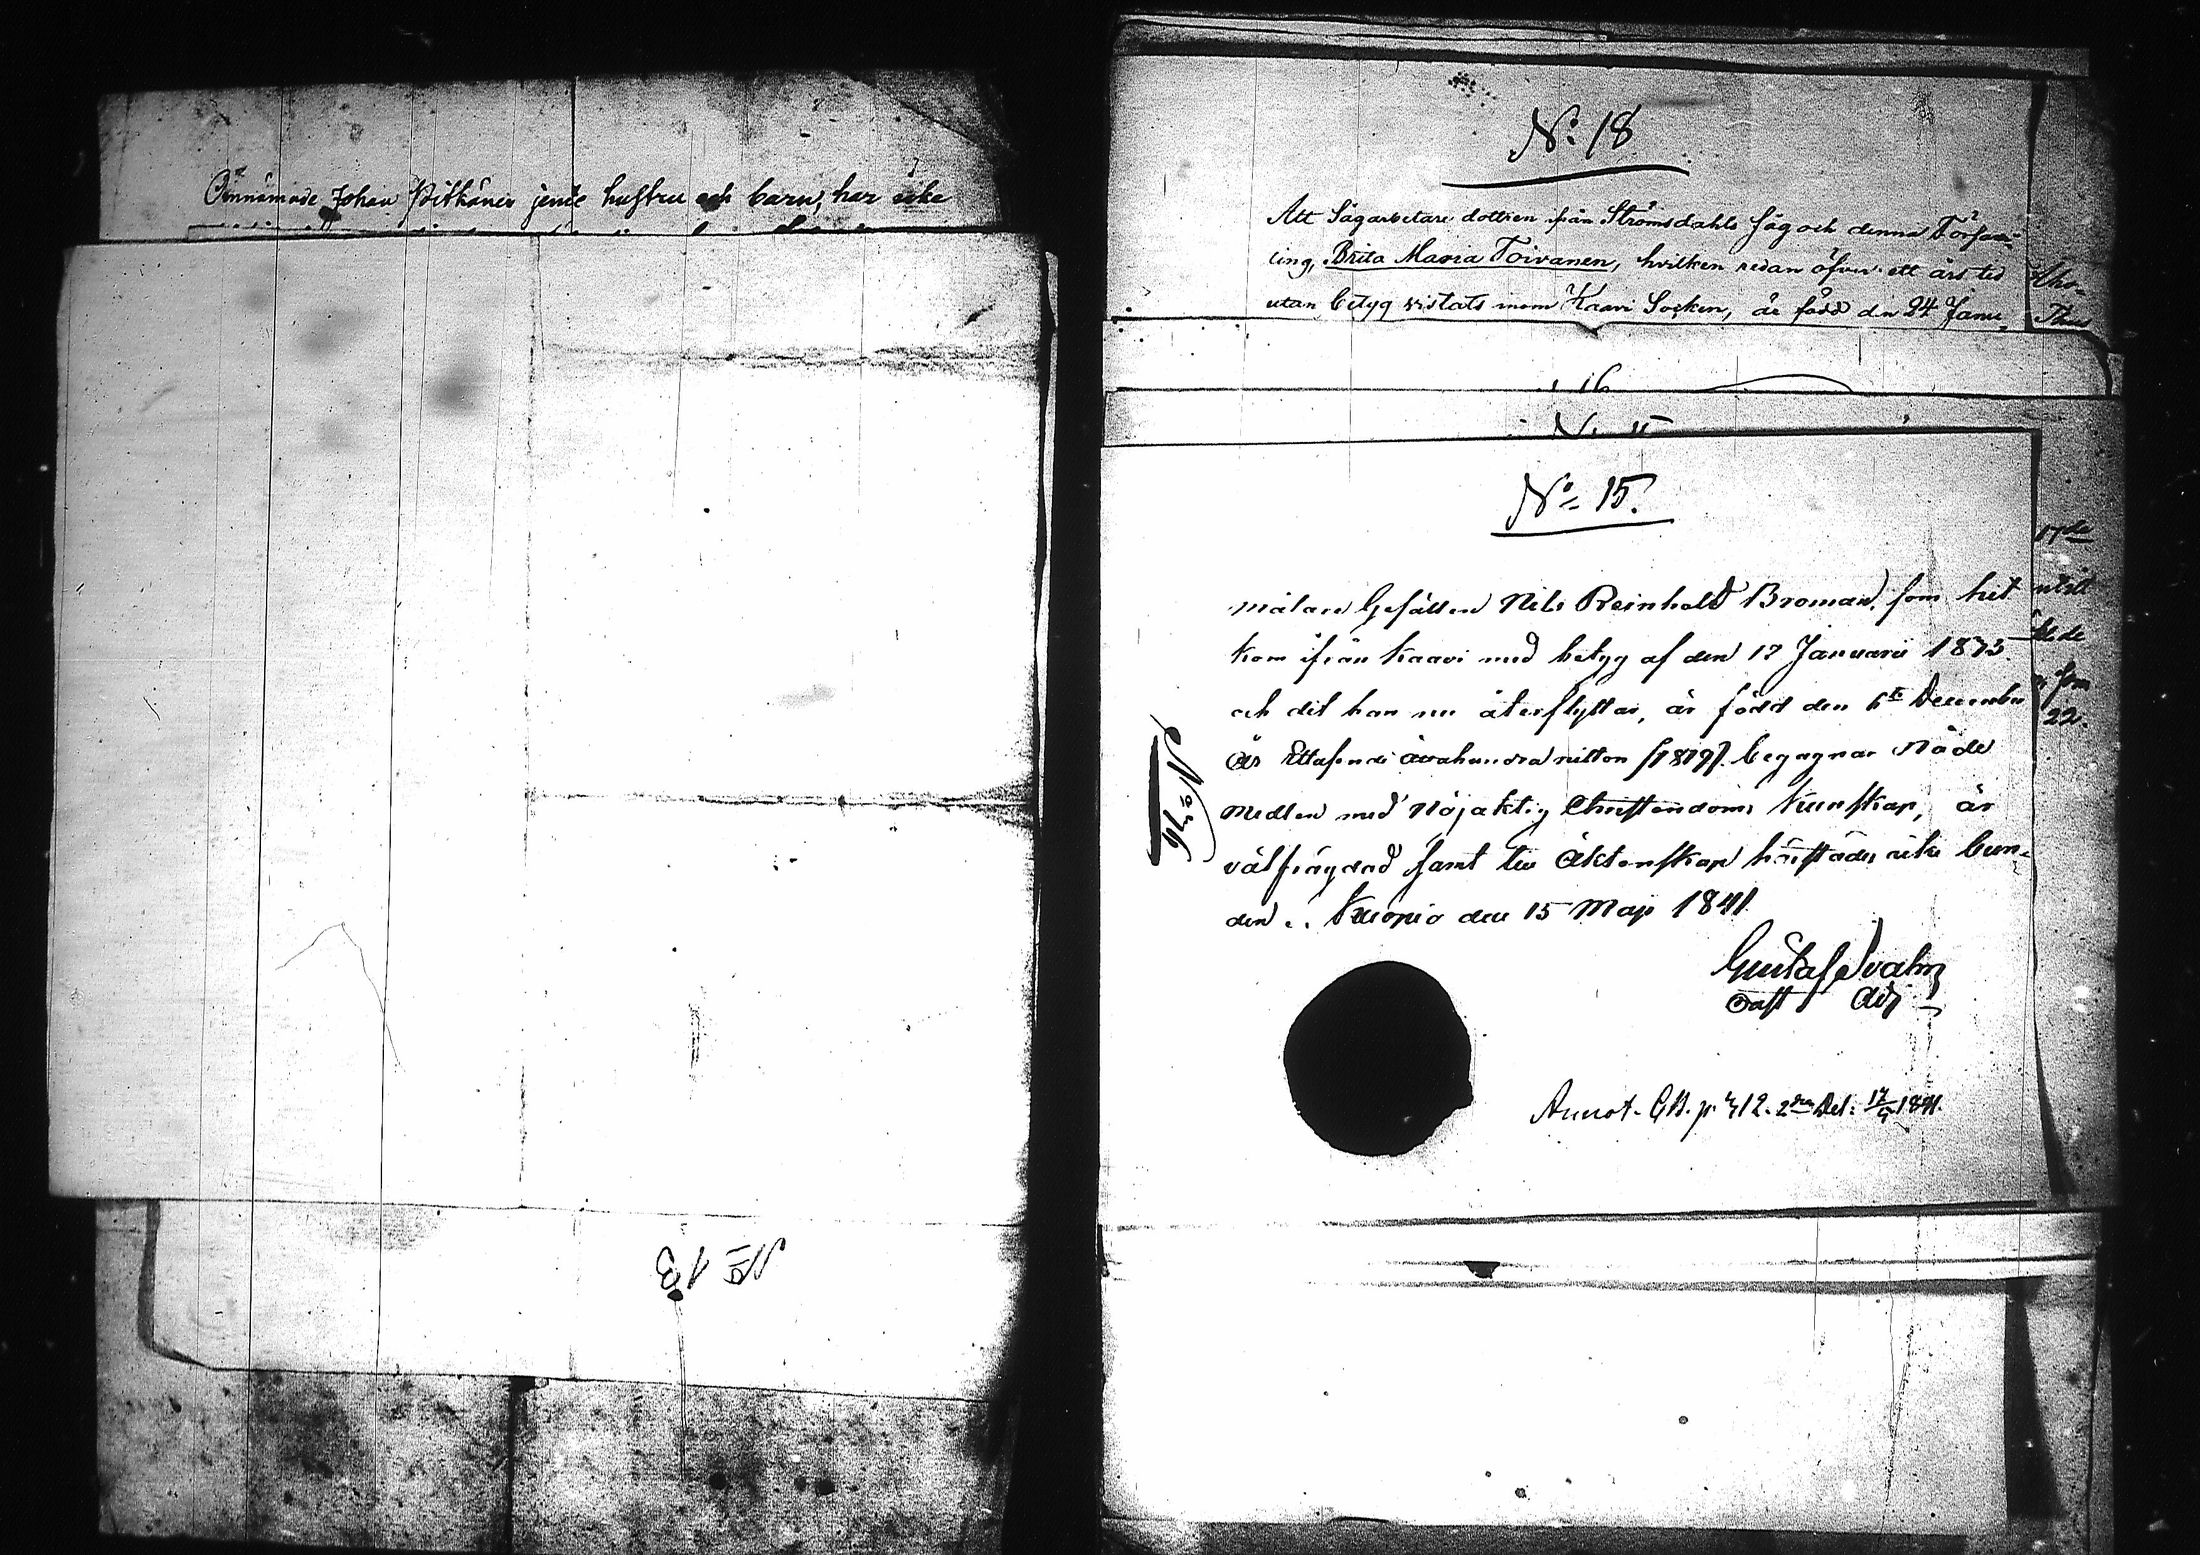 Ofvannämnde Johan Pitkänen jemte hustru och barn, har icke
N:o 13
N:o 18
Att Sågarbetare dottren från Strömsdahls såg och denna Församling,
ling, Brita Maria Toivanen, hvilken redan öfver ett års tid
utan betyg vistats inom Kaavi Socken, är född den 24 Janu-
16
N:o 15.
målare Gesällen Nils Reinhold Broman, som hit
kom ifrån Kaavi med betyg af den 17 Januarii 1835
och dit han nu återflyttar, är född den 6te December
År Ettusende åttahundra nitton (1819). begagnar Nåde
medlen med Nöjaktig Christendoms kunskap, är
välfrägdad samt till Äktenskap härstädes icke bun-
den. Kuopio den 15 Maji 1841.
Gustaf Svahn
Past Adj
Annot. C.B. p. 412. 2dra Del. 17/5 1841.
17de
22.